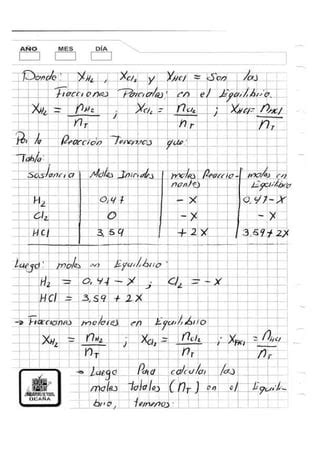 AÑO MES DÍA
Donde: X_H2, X_Cl2 y X_HCl = Son las
Fracciones Parciales en el Equilibrio.
X_H2 = n_H2 / n_T ; X_Cl2 = n_Cl2 / n_T ; X_HCl = n_HCl / n_T
Por la Reacción Tenemos que:
Tabla:
Sustancia | Moles Iniciales | moles Reaccionantes | moles en Equilibrio
H2 | 0,47 | - X | 0,47-X
Cl2 | 0 | - X | - X
HCl | 3,59 | + 2X | 3,59+2X
Luego: moles en Equilibrio:
H2 = 0,47 - X ; Cl2 = - X
HCl = 3,59 + 2X
→ Fracciones molares en Equilibrio
X_H2 = n_H2 / n_T ; X_Cl2 = n_Cl2 / n_T ; X_HCl = n_HCl / n_T
→ Luego Para calcular las
moles Totales (n_T) en el Equili-
brio, tenemos:
OCAÑA